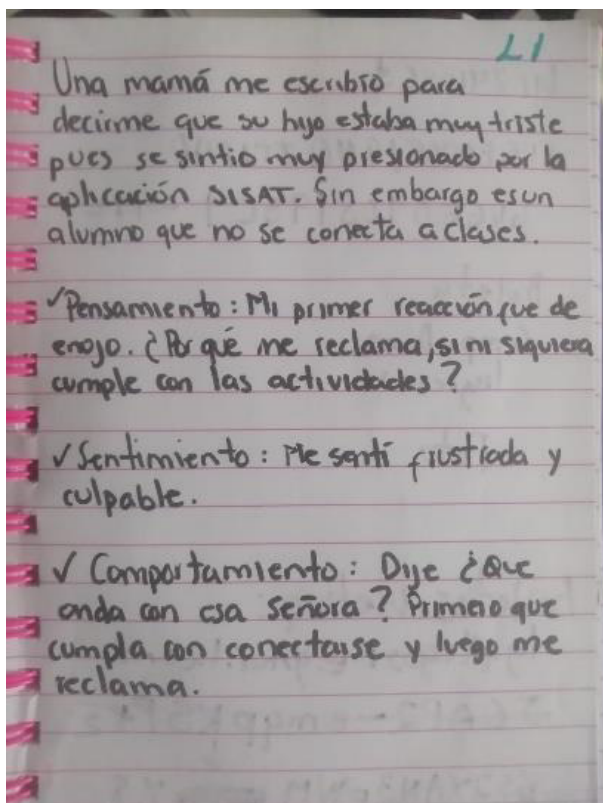 L1
Una mamá me escribio para
decirme que su hijo estaba muy triste
pues se sintio muy presionado por la
aplicación SISAT. Sin embargo es un
alumno que no se conecta a clases.
✓Pensamiento: Mi primer reacción fue de
enojo. ¿Por qué me reclama, si ni siquiera
cumple con las actividades?
✓Sentimiento: Me sentí frustrada y
culpable.
✓ Comportamiento: Dije ¿Que
onda con esa Señora? Primero que
cumpla con conectarse y luego me
reclama.